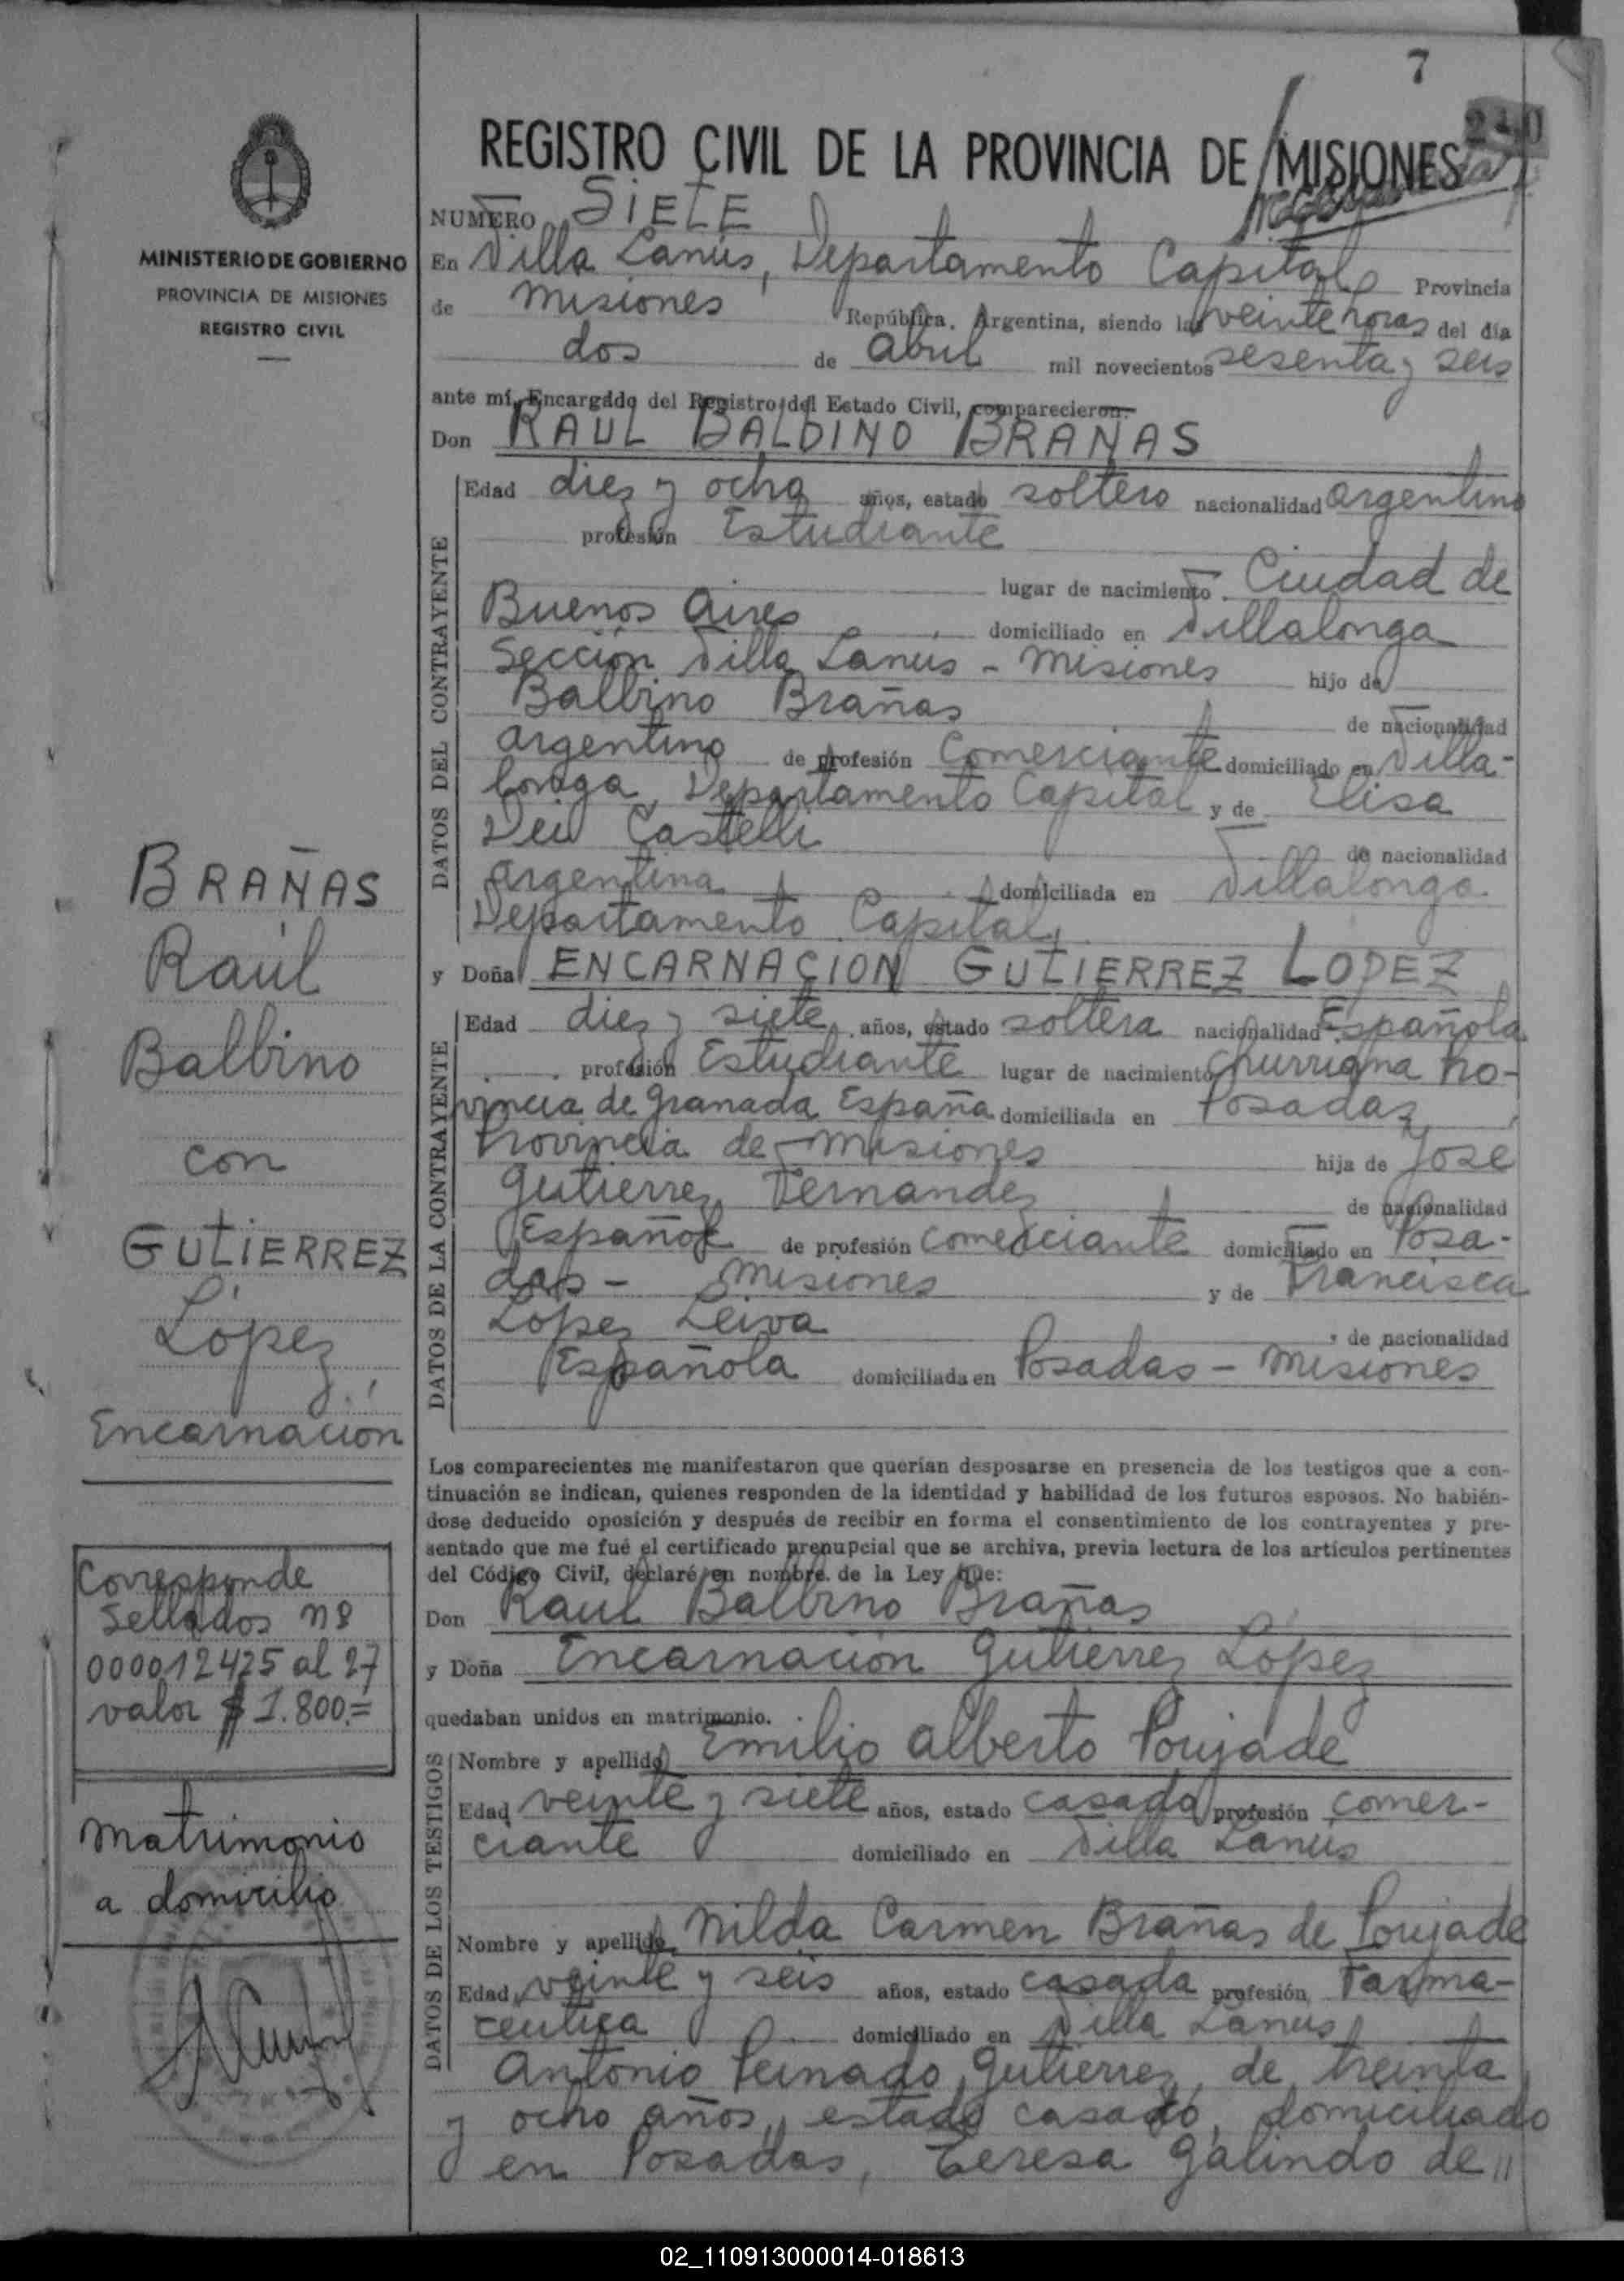 7
REGISTRO CIVIL DE LA PROVINCIA DE MISIONES
240
MINISTERIO DE GOBIERNO
PROVINCIA DE MISIONES
REGISTRO CIVIL
NUMERO SIETE
En Villa Lanús, Departamento Capital Provincia
de Misiones República Argentina, siendo las veinte horas del día
dos de Abril mil novecientos sesenta y seis
ante mí, Encargado del Registro del Estado Civil, comparecieron:
Don RAUL BALBINO BRAÑAS
DATOS DEL CONTRAYENTE
Edad diez y ocho años, estado soltero nacionalidad argentino
profesión Estudiante
lugar de nacimiento Ciudad de
Buenos Aires domiciliado en Villalonga
Sección Villa Lanus - Misiones hijo de
Balbino Brañas de nacionalidad
argentino de profesión Comerciante domiciliado en Villa-
longa Departamento Capital y de Elisa
Dei Castelli de nacionalidad
argentina domiciliada en Villalonga
Departamento Capital
y Doña ENCARNACION GUTIERREZ LOPEZ
DATOS DE LA CONTRAYENTE
Edad diez y siete años, estado soltera nacionalidad Española
profesión Estudiante lugar de nacimiento Churriana Pro-
vincia de Granada España domiciliada en Posadas
Provincia de Misiones hija de José
Gutierrez Fernandez de nacionalidad
Español de profesión comerciante domiciliado en Posa-
das - Misiones y de Francisca
López Leiva de nacionalidad
Española domiciliada en Posadas - Misiones
Los comparecientes me manifestaron que querían desposarse en presencia de los testigos que a con-
tinuación se indican, quienes responden de la identidad y habilidad de los futuros esposos. No habién-
dose deducido oposición y después de recibir en forma el consentimiento de los contrayentes y pre-
sentado que me fué el certificado prenupcial que se archiva, previa lectura de los artículos pertinentes
del Código Civil, declaré en nombre de la Ley que:
Don Raul Balbino Brañas
y Doña Encarnación Gutierrez López
quedaban unidos en matrimonio.
DATOS DE LOS TESTIGOS
Nombre y apellido Emilio Alberto Poujade
Edad veinte y siete años, estado casado profesión comer-
ciante domiciliado en Villa Lanús
Nombre y apellido Nilda Carmen Brañas de Poujade
Edad veinte y seis años, estado casada profesión Farma-
ceutica domiciliado en Villa Lanus
Antonio Peinado Gutierrez, de treinta
y ocho años, estado casado, domiciliado
en Posadas, Teresa Galindo de //
BRAÑAS
Raúl
Balbino
con
GUTIERREZ
López,
Encarnación
Corresponde
Sellados nº
000012425 al 27
valor $ 1.800.=
Matrimonio
a domicilio
02_110913000014-018613